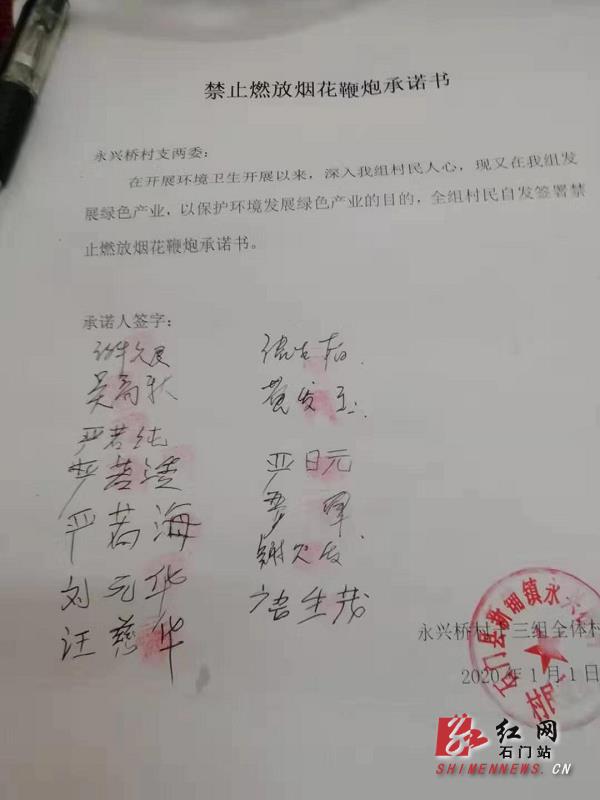 禁止燃放烟花鞭炮承诺书
永兴桥村支两委：
在开展环境卫生开展以来，深入我组村民人心，现又在我组发
展绿色产业，以保护环境发展绿色产业的目的，全组村民自发签署禁
止燃放烟花鞭炮承诺书。
承诺人签字：
吴高秋
黄发玉
严若纯
严若清
严日元
严若海
严军
谢欠友
刘元华
唐生茂
汪慈华
永兴桥村十三组全体村
2020年1月1日
石门县新铺镇永兴
村民
红网
石门站
SHIMENNEWS.CN